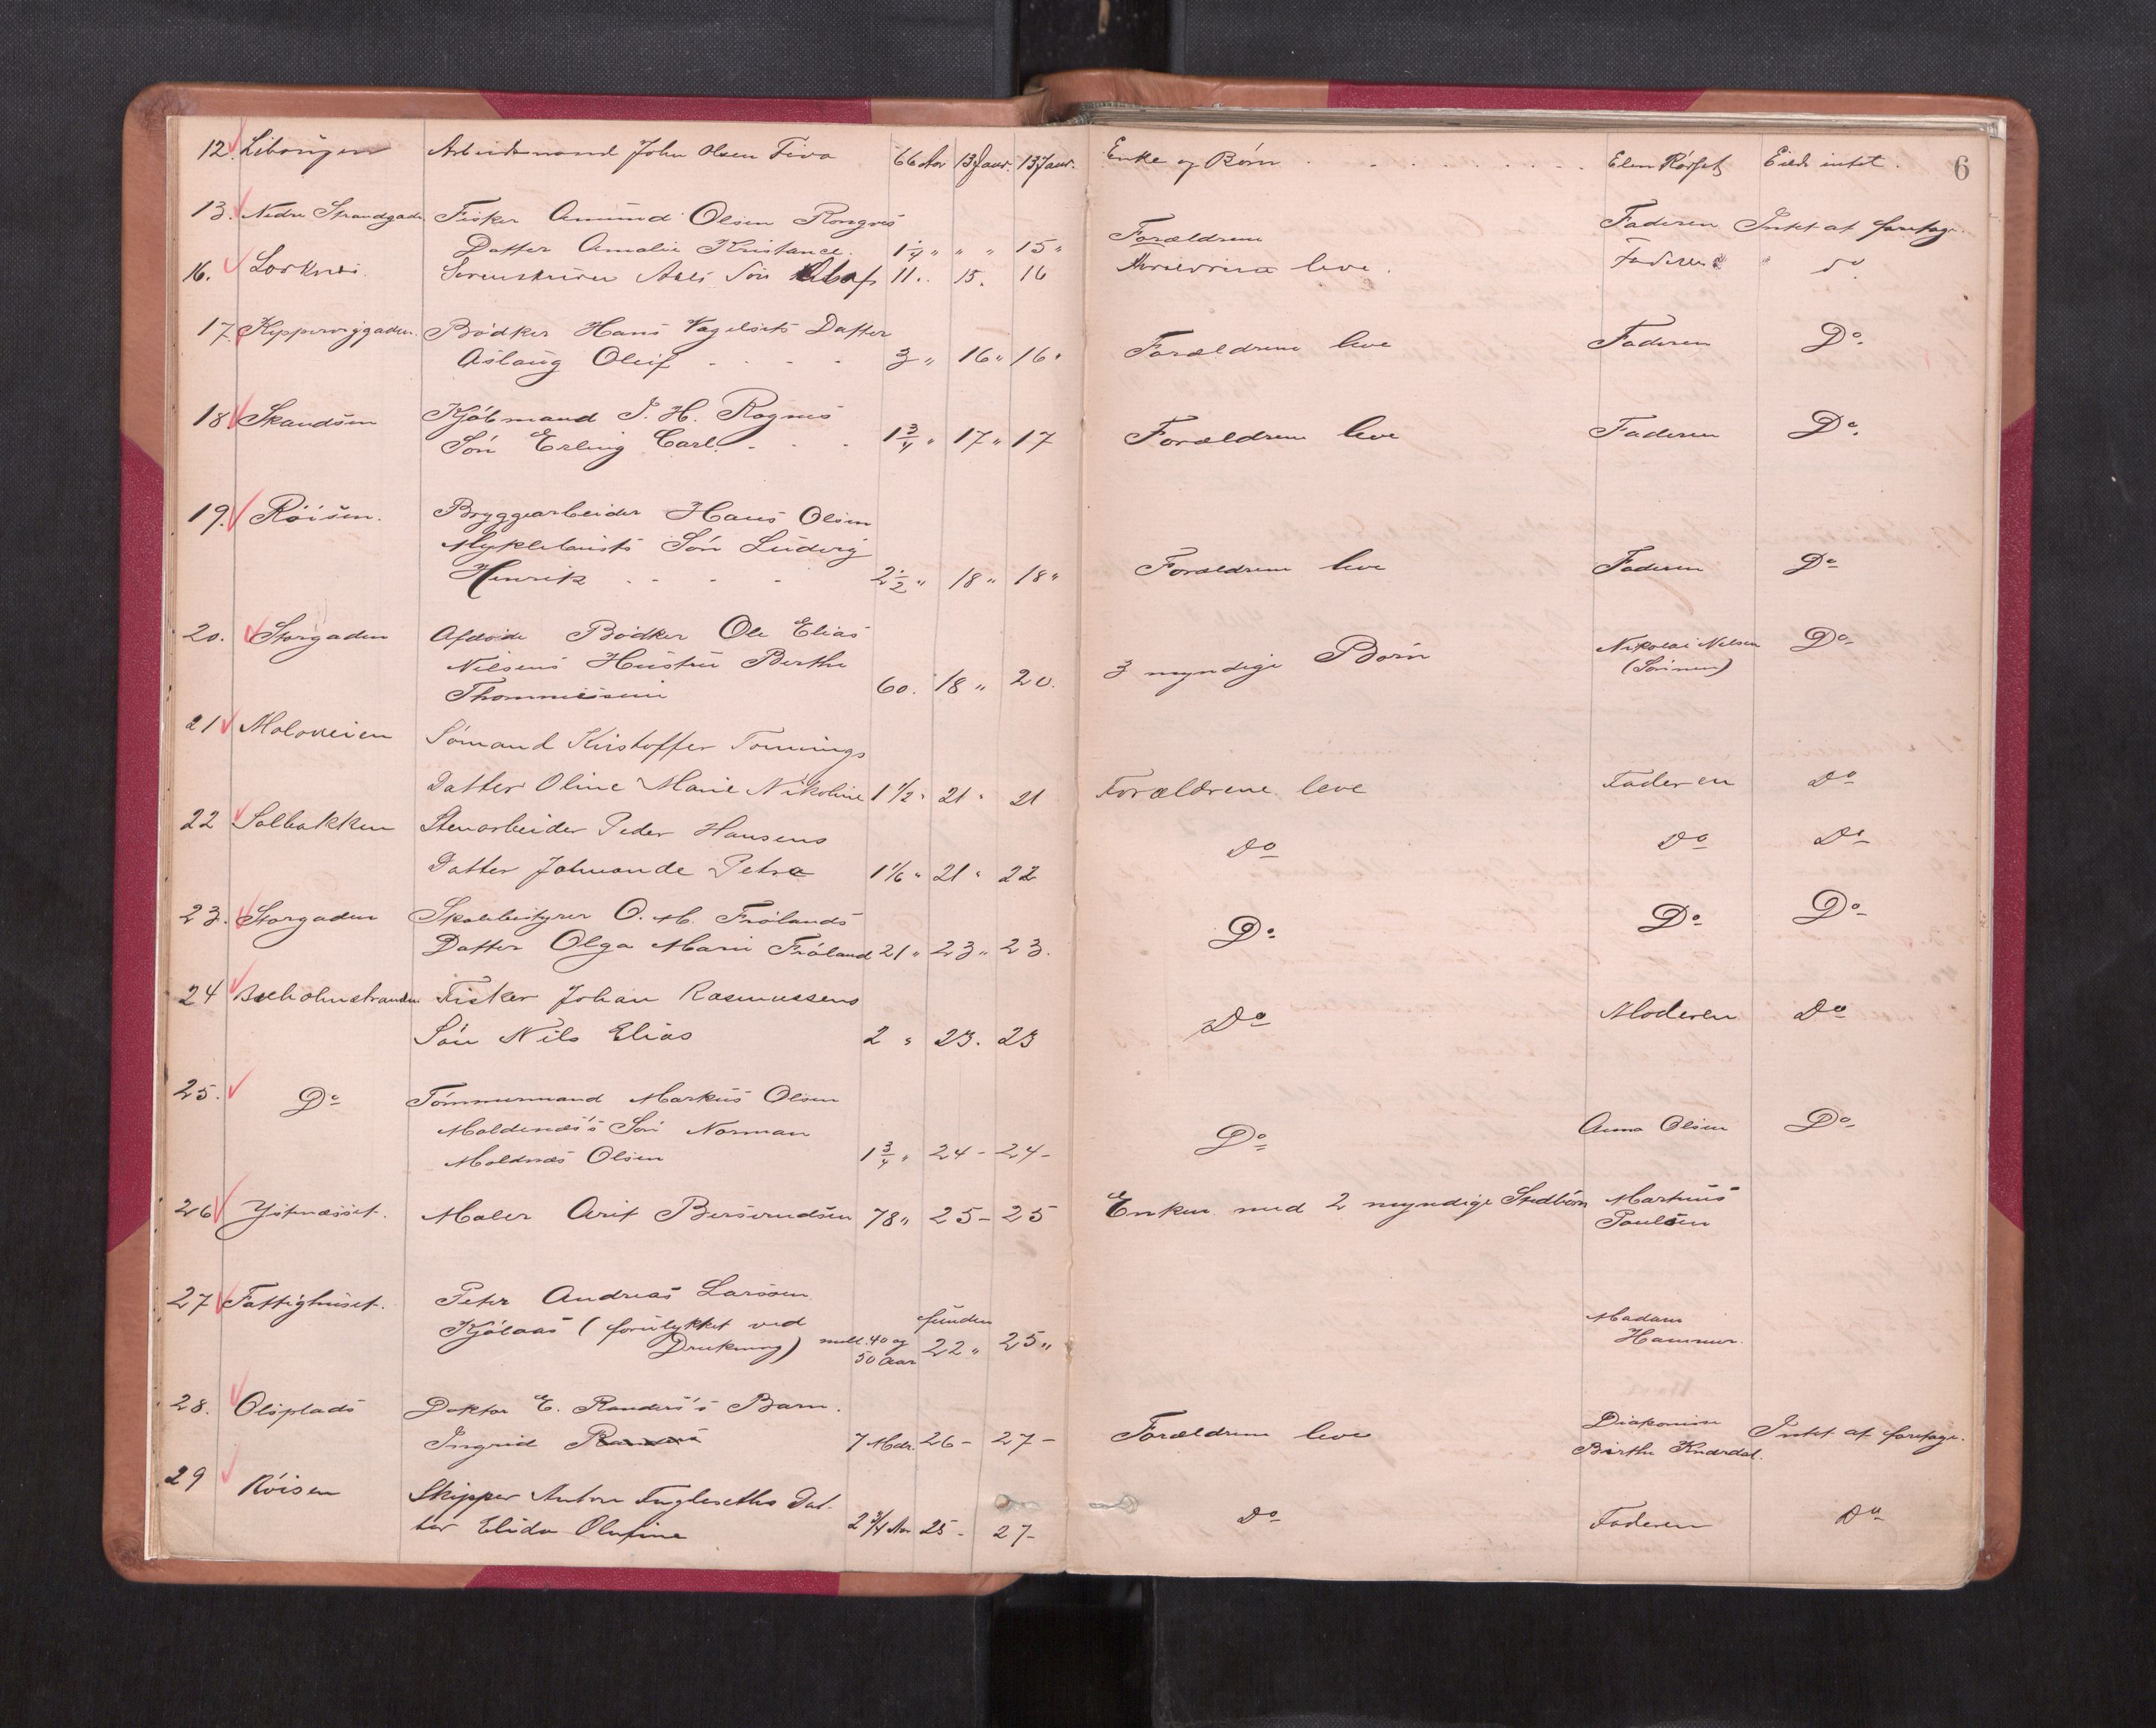 6
12. Libvigen Arbeidsmand John Olsen Tiva 66 Aar 13 Janr. 13 Janr. Enke og Børn Elen Rørset Eiede intet.
13. Nedre Strandgade Fisker Amund Olsen Rongves Forældrene Faderen Intet at foretage.
Datter Amalie Kristance. 1 1/4 " " " 15 "
16. Sorenskriver Aals Søn Olaf 11. 15. 16 leve. Faderen do
17. Kipperviggaden. Bødker Hans Vagelsets Datter Forældrene leve Faderen Do.
Aslaug Oluf 3 " 16 " 16 "
18 Skandsen Kjøbmand J. H. Rognes
Søn Erling Carl. 1 3/4 " 17 " 17 Forældrene leve Faderen Do.
19. Røisen. Bryggearbeider Hans Olsen
Myklebusts Søn Ludvig
Henrik 2 1/2 " 18 " 18 " Forældrene leve Faderen Do
20. Storgaden Afdøde Bødker Ole Elias Nikolai Nilsen Do
Nilsens Hustru Berthe 3 myndige Børn (Sønnen)
Thommesseni 60. 18 " 20.
21 Moloveien Sømand Kristoffer Tonnings
Datter Oline Marie Nikoline 1 1/2 " 21 " 21 Forældrene leve Faderen do
22 Solbakken Stenarbeider Peder Hansens do do do
Datter Johande Petra 1 1/6 " 21 " 22
23. Storgaden Skolebestyrer O. M. Frølands Do Do Do
Datter Olga Marie Frøland 21 " 23 " 23.
24 Buholmstranden Fisker Johan Rasmussens Do Moderen Do
Søn Nils Elias 2 " 23. 23
25. Do Tømmermand Markus Olsen
Moldenæs's Søn Norman Do Anna Olsen Do
Moldnæs Olsen 1 3/4 " 24 - 24 -
26 Ystenæsset. Maler Arit Berserudsen 78 " 25 - 25 Enken med 2 myndige Stedbørn Martinus
Paulsen
27 Fattighuset. Peter Andreas Larssen Madam
Kjølaas (forulykket ved funden Hammer.
Drukning) mell. 40 og 22 " 25 "
50 Aar
28. Olsplads Doktor E. Randers's Barn. Diakonisse
Ingrid Randers 7 Mdr. 26 - 27 - Forældrene leve Birthe Knardal. Intet at foretage.
29 Røisen Skipper Anton Fugleseths Dat-
ter Elida Olufine 2 3/4 Aar 25 - 27 - do Faderen do